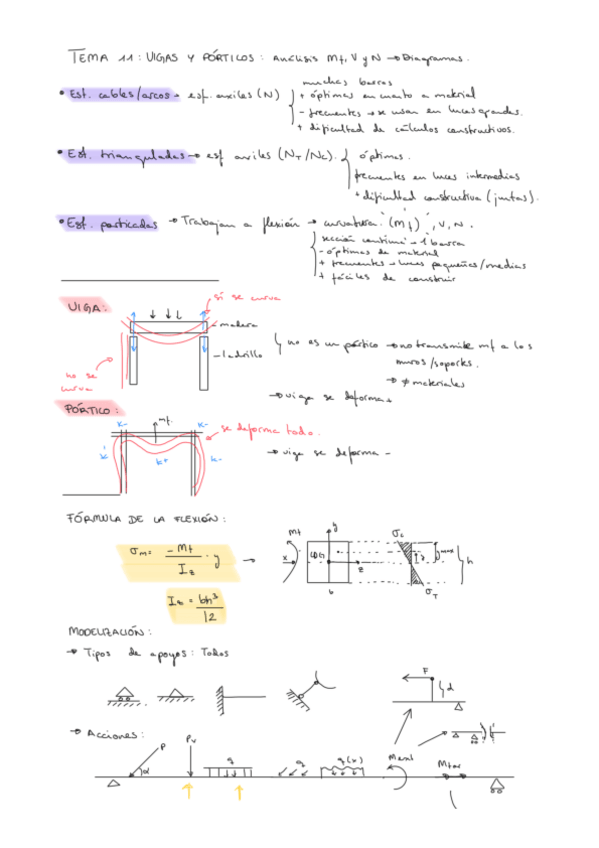 TEMA 11: VIGAS Y PÓRTICOS: Análisis Mf, V y N → Diagramas.
muchas barras
• Est. cables/arcos → esf. axiles (N) + óptimas en cuanto a material
- frecuentes → se usan en luces grandes.
+ dificultad de cálculos constructivos.
• Est. trianguladas → esf axiles (NT/NC). óptimas.
frecuentes en luces intermedias
+ dificultad constructiva (juntas).
• Est. porticadas → Trabajan a flexión → curvatura. (Mf), V, N.
sección continua → 1 barra
- óptimas de material
+ frecuentes → luces pequeñas/medias
+ fáciles de construir
VIGA:
sí se curva
madera
ladrillo
no es un pórtico → no transmite mf a los
muros/soportes.
→ ≠ materiales
no se
curva
→ viga se deforma +
PÓRTICO:
mf.
K-
K-
K+
K-
se deforma todo.
→ viga se deforma -
FÓRMULA DE LA FLEXIÓN:
σm = -Mf / Iz · y →
Iz = bh³ / 12
Mf
y
x
CDG
z
b
σc
ymax
h
σT
MODELIZACIÓN:
→ Tipos de apoyos: Todos
F
d
→ Acciones:
P
α
Pv
q
q
q(x)
Mext
Mtor